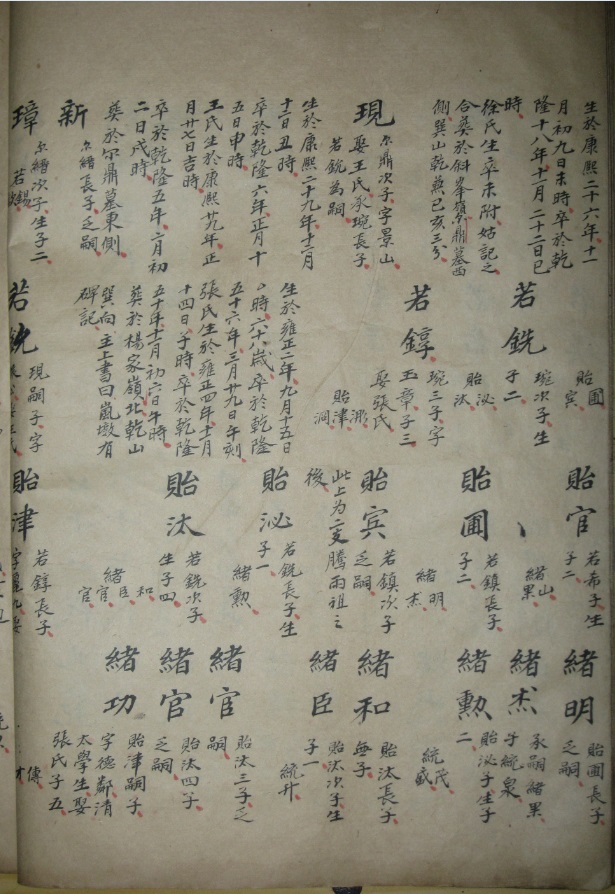 生於康熙二十六年十一
月初九日未時卒於乾
隆十八年十一月二十二日巳
時
徐氏生卒未附姑記之
合葬於斜峯嶺尔鼎墓西
側巽山乾兼巳亥三分
現
尔鼎次子字景山
娶王氏承琬長子
若銑為嗣
生於康熙二十九年十一月
十二日丑時
卒於乾隆六年正月十
五日申時
王氏生於康熙廿九年正
月廿七日吉時
卒於乾隆五年二月初
二日戌時
葬於尔鼎墓東側
新
尔緒長子乏嗣
璋
尔緒次子生子二
若錫
貽圃
貽賓
若銑
琬次子生
子二
貽泌
貽汰
若錞
琬三子字
玉章子三
娶張氏
貽津
生於雍正二年九月十五日
時六十八歲卒於乾隆
五十六年三月廿九日午刻
張氏生於雍正四年十一月
十四日子時卒於乾隆
五十年十二月初六日午時
葬於楊家嶺北乾山
巽向主上書曰嵐墩有
碑記
若銑
現嗣子字
貽官
若希子生
子二
緒山
緒果
貽圃
若鎮長子
子二
緒明
緒杰
貽賓
若鎮次子
乏嗣
此上为二支騰雨祖之
後
貽泌
若銑長子生
子一
緒勲
貽汰
若銑次子
生子四
緒和
緒臣
官
官
貽津
若錞長子
緒明
貽圃長子
乏嗣
緒杰
承嗣緒果
子統泉
緒勲
貽泌子生子
二
統茂
統盛
緒和
貽汰長子
無子
緒臣
貽汰次子生
子一
統升
緒官
貽汰三子乏
嗣
緒官
貽汰四子
乏嗣
緒功
貽津嗣子
字德鄰清
太學生娶
張氏子五
傳
才